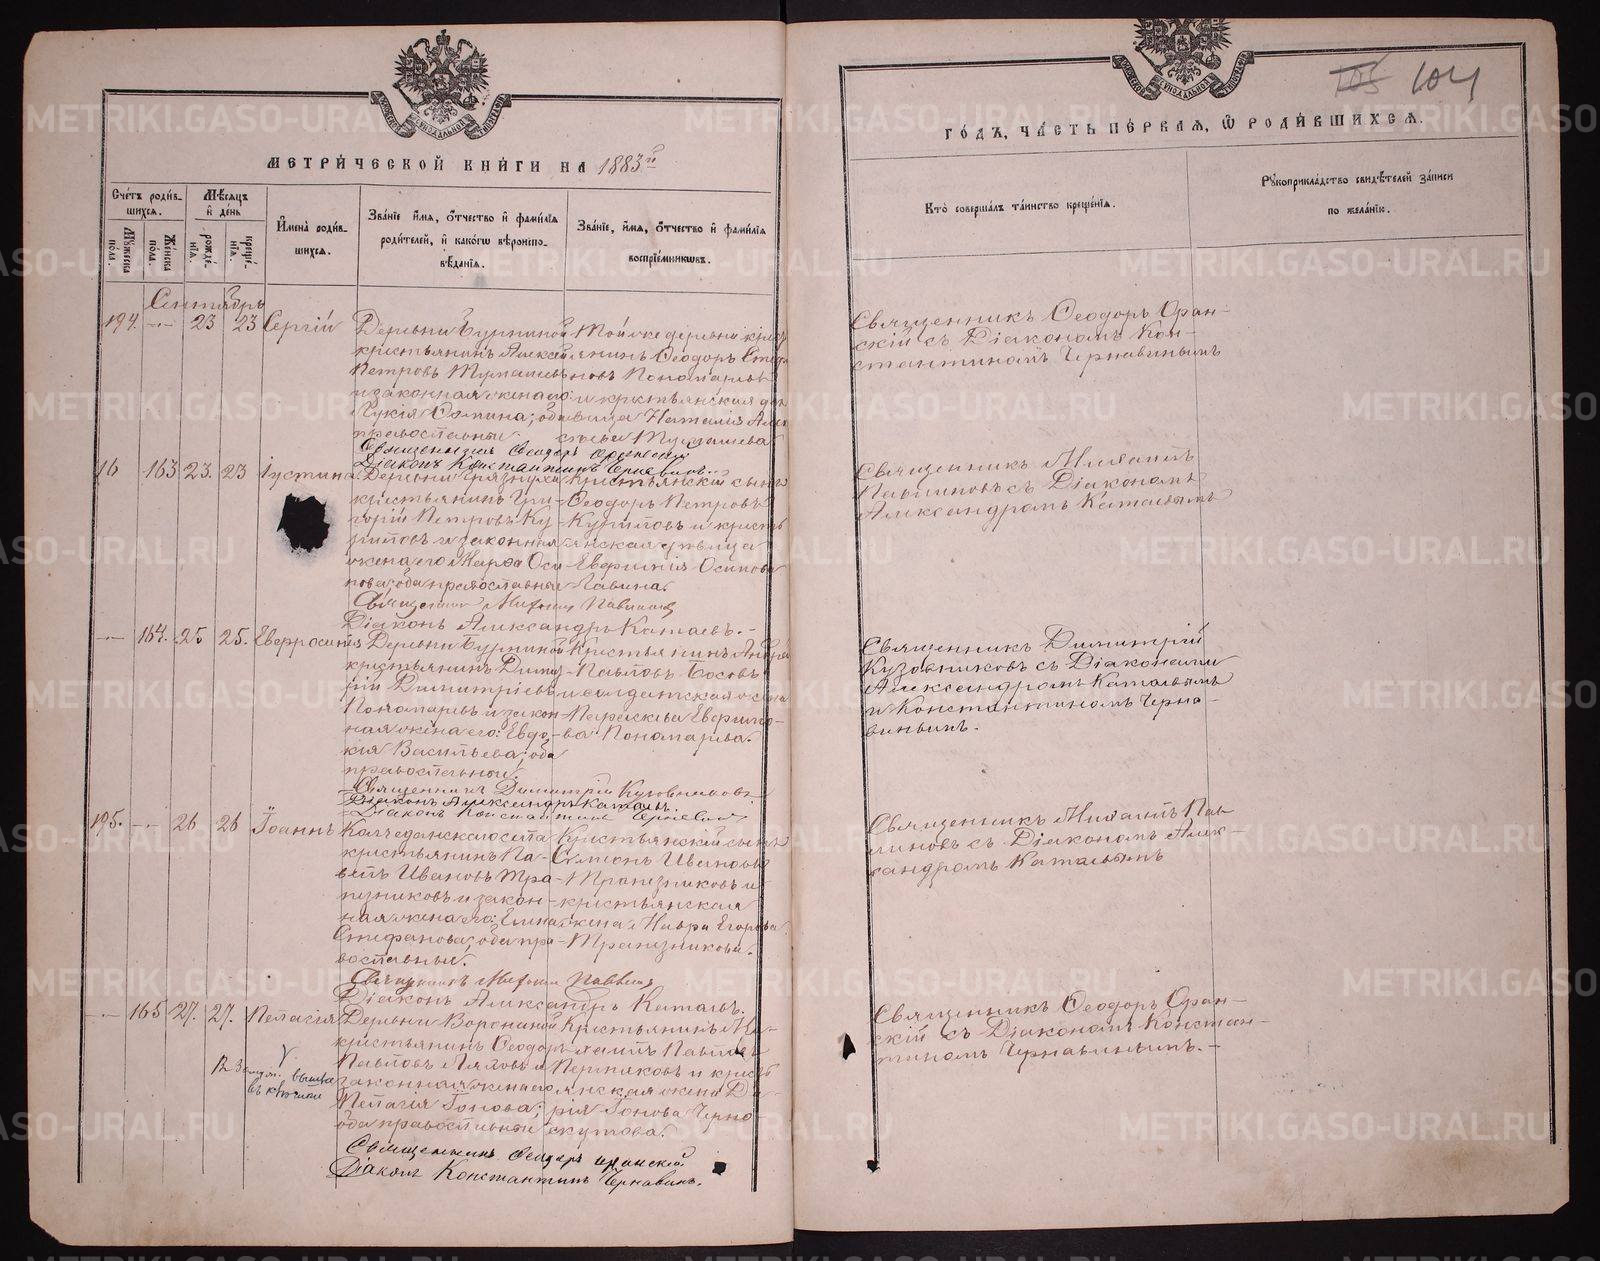 МЕТРИ́ЧЕСКОЙ КНИ́ГИ НА 1883й
Сче́тъ роди́в-
шихся.
Мѣ́сяцъ
и҆ де́нь
Мꙋ́жеска по́ла.
Же́нска по́ла.
рожде́-
нїѧ.
креще́-
нїѧ.
И҆мена̀ роди́в-
шихся.
Зва́нїе и҆́мѧ, ѻ҆́тчество и҆ фами́лїѧ
роди́телей, и҆ како́гѡ вѣроиспо-
вѣ́данїѧ.
Зва́нїе, и҆́мѧ, ѻ҆́тчество и҆ фами́лїѧ
воспрїе́мникѡвъ.
Сентябрь
194. -"- 23 23 Сергій
Деревни Бурниной
крестьянинъ Алексей
Петровъ Тумашевъ
и законная жена его
Лукія Ѳомина; оба
православные
Той же деревни крес
янинъ Ѳеодоръ Стефа
новъ Пономаревъ
и крестьянская де
вица Наталія Алек
сѣева Тумашева
Священникъ Ѳеодоръ Оранскій
Діаконъ Константинъ Чернавинъ.
163 23. 23 Іустина
Деревни Грязнухи
крестьянинъ Гри-
горій Петровъ Ку-
риловъ и законная
жена его Марѳа Оси
пова; оба православные
Крестьянскій сынъ
Ѳеодоръ Петровъ
Куриловъ и кресть
янская дѣвица
Евфимія Осипова
Лавина.
Священникъ Михаилъ Павлиновъ
Діаконъ Александръ Катаевъ.-
-"- 164. 25 25. Евфросинія
Деревни Бурниной
крестьянинъ Дими-
рій Димитріевъ
Пономаревъ и закон-
ная жена его: Евдо-
кія Васильева; оба
православные.
Крестьянинъ Андрей
Павловъ Босовъ
и солдатская жена
Параскева Евфимо-
ва Пономарева.
Священникъ Димитрій Кузовниковъ
Діаконъ Александръ Катаевъ.
Діаконъ Константинъ Чернавинъ
195. -"- 26 26 Іоаннъ
Колчеданскаго села
крестьянинъ Па-
велъ Ивановъ Тра-
пезниковъ и закон-
ная жена его: Елена
Стефанова; оба пра-
вославные.
Крестьянскій сынъ
Симеонъ Ивановъ
Трапезниковъ и
крестьянская
жена Мавра Егорова
Трапезникова.
Священникъ Михаилъ Павлиновъ
Діаконъ Александръ Катаевъ.
-"- 165 27. 27. Пелагія
Деревни Ворониной
крестьянинъ Ѳеодоръ
Павловъ Ляховъ и
законная жена его
Пелагія Іонова;
оба православные
Крестьянинъ Ма-
Павловъ
Пермяковъ и крест
янская жена Да-
рія Іонова Черно-
скутова.
Священникъ Ѳеодоръ Оранскій
Діаконъ Константинъ Чернавинъ.
ГО́ДЪ, ЧА́СТЬ ПЕ́РВАЯ, Ѽ РОДИ́ВШИХСЯ.
104
Кто̀ соверша́лъ та́инство креще́нїѧ.
Рꙋкоприкла́дство свидѣ́телей за́писи
по жела́нїю.
Священникъ Ѳеодоръ Оран-
скій съ Діакономъ Кон-
стантиномъ Чернавинымъ
Священникъ Михаилъ
Павлиновъ съ Діакономъ
Александромъ Катаевымъ
Священникъ Димитрій
Кузовниковъ съ Діаконами
Александромъ Катаевымъ
и Константиномъ Черна-
винымъ.
Священникъ Михаилъ Пав-
линовъ съ Діакономъ Алек-
сандромъ Катаевымъ
Священникъ Ѳеодоръ Оран-
скій съ Діакономъ Констан-
тиномъ Чернавинымъ.-
METRIKI.GASO-URAL.RU